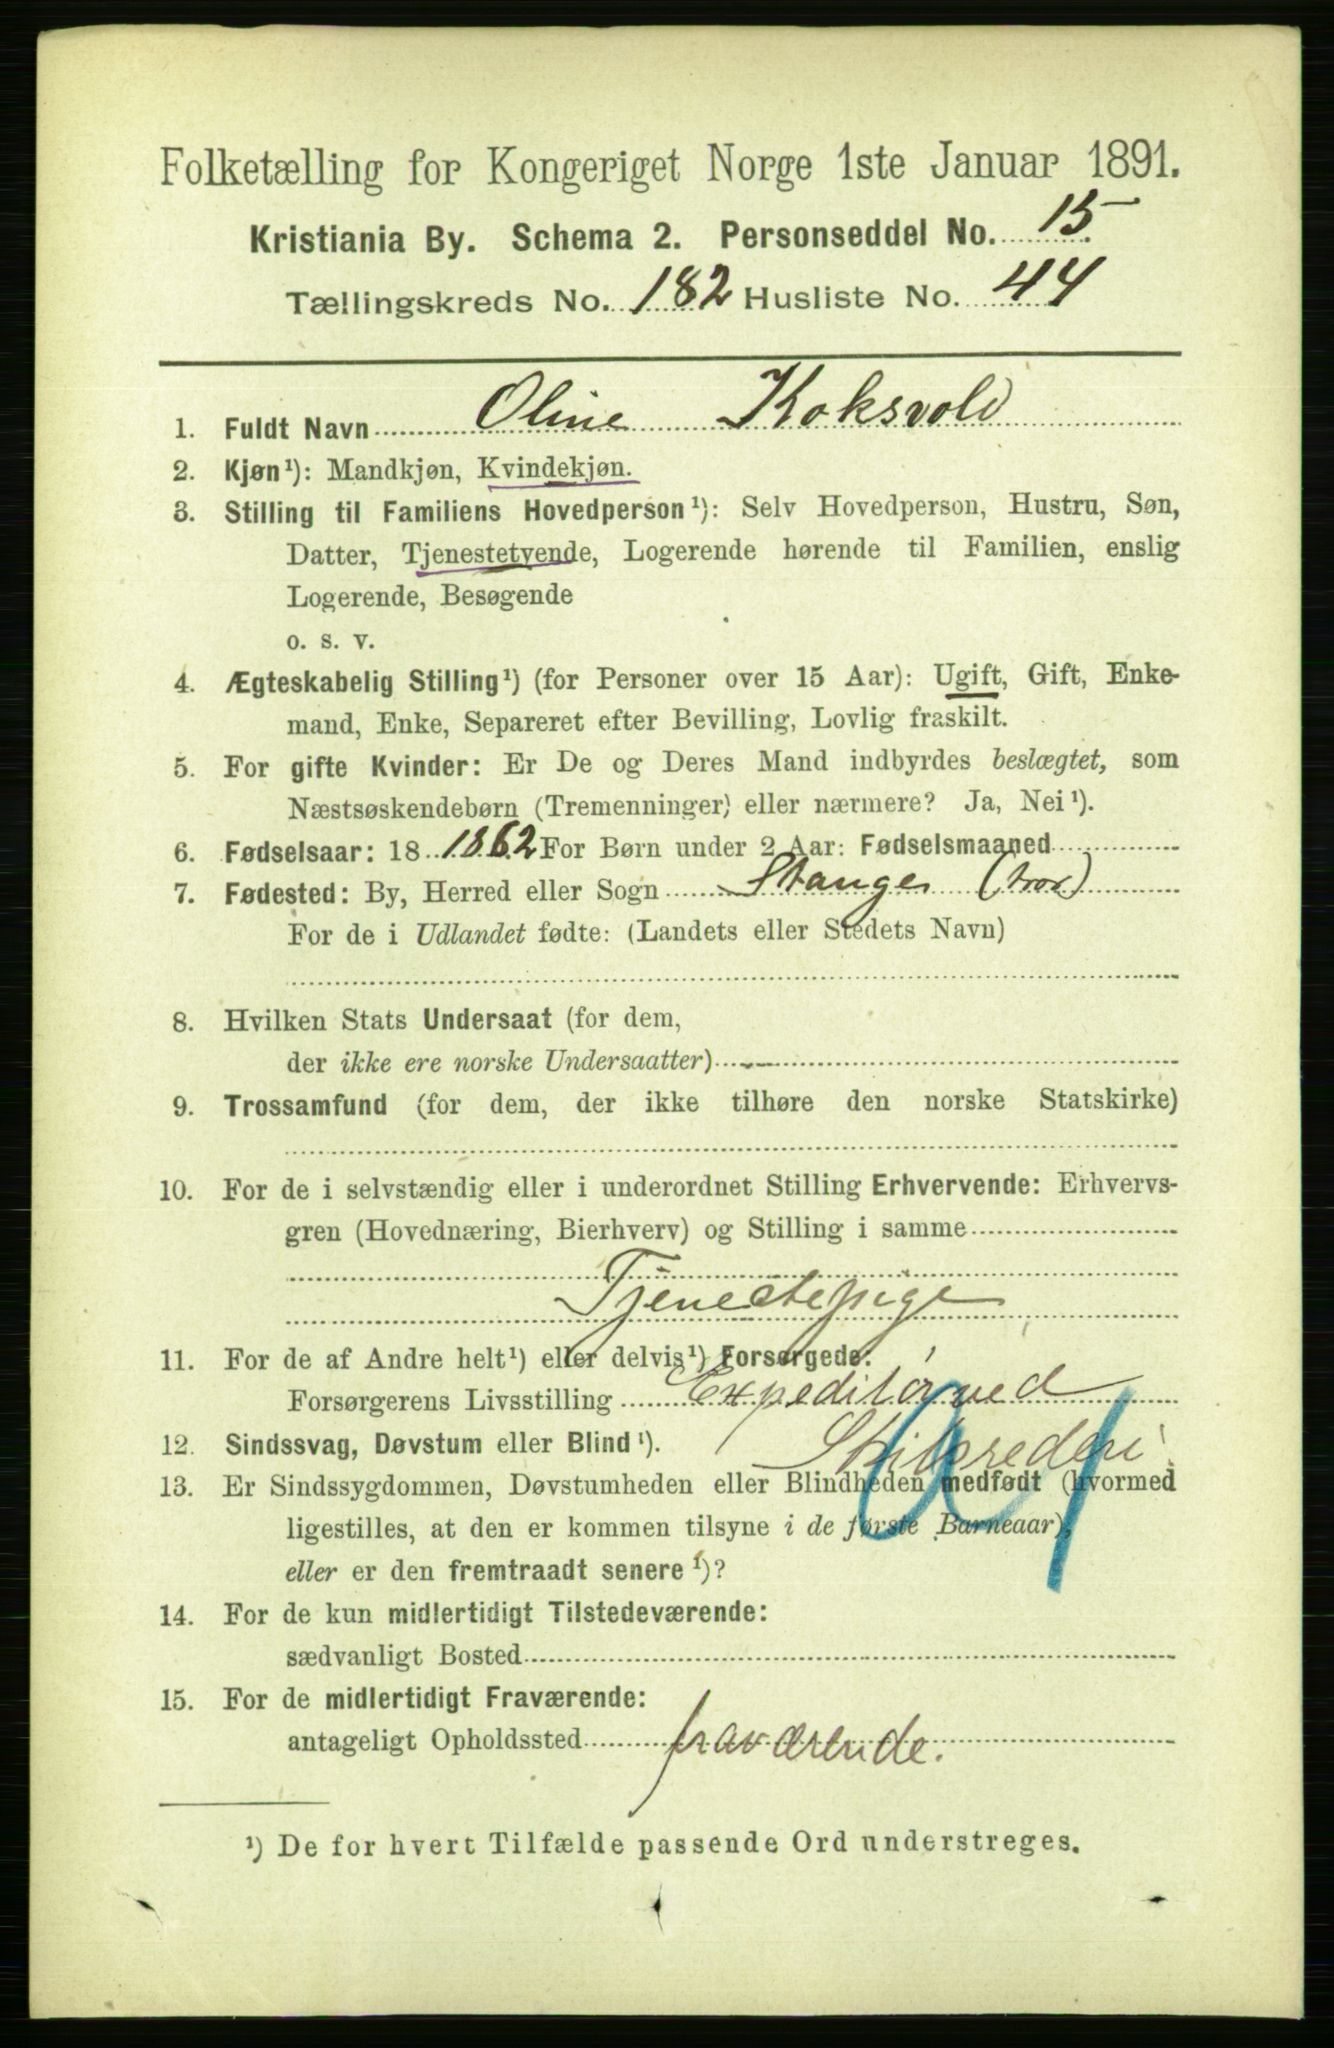 Folketælling for Kongeriget Norge 1ste Januar 1891.
Kristiania By. Schema 2. Personseddel No. 15
Tællingskreds No. 182 Husliste No. 44
1. Fuldt Navn Oline Koksvold
2. Kjøn¹): Mandkjøn, Kvindekjøn.
3. Stilling til Familiens Hovedperson¹): Selv Hovedperson, Hustru, Søn,
Datter, Tjenestetyende, Logerende hørende til Familien, enslig
Logerende, Besøgende
o. s. v.
4. Ægteskabelig Stilling¹) (for Personer over 15 Aar): Ugift, Gift, Enke-
mand, Enke, Separeret efter Bevilling, Lovlig fraskilt.
5. For gifte Kvinder: Er De og Deres Mand indbyrdes beslægtet, som
Næstsøskendebørn (Tremenninger) eller nærmere? Ja, Nei¹).
6. Fødselsaar: 18 1862 For Børn under 2 Aar: Fødselsmaaned
7. Fødested: By, Herred eller Sogn Stange (tror)
For de i Udlandet fødte: (Landets eller Stedets Navn)
8. Hvilken Stats Undersaat (for dem,
der ikke ere norske Undersaatter)
9. Trossamfund (for dem, der ikke tilhøre den norske Statskirke)
10. For de i selvstændig eller i underordnet Stilling Erhvervende: Erhvervs-
gren (Hovednæring, Bierhverv) og Stilling i samme
Tjenestepige
11. For de af Andre helt¹) eller delvis¹) Forsørgede:
Forsørgerens Livsstilling Expeditör ved
12. Sindssvag, Døvstum eller Blind¹). Skibsrederi
13. Er Sindssygdommen, Døvstumheden eller Blindheden medfødt (hvormed
ligestilles, at den er kommen tilsyne i de første Barneaar),
eller er den fremtraadt senere¹)?
14. For de kun midlertidigt Tilstedeværende:
sædvanligt Bosted
15. For de midlertidigt Fraværende:
antageligt Opholdssted fraværende.
¹) De for hvert Tilfælde passende Ord understreges.